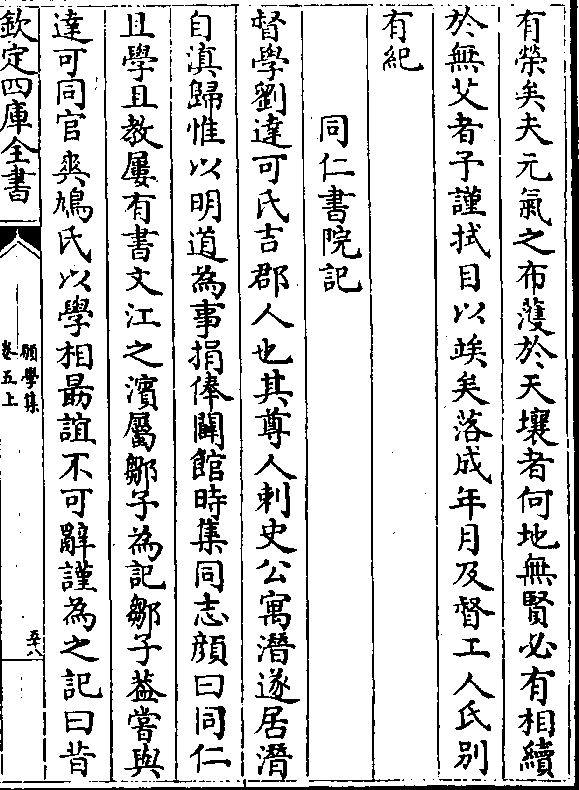 有榮矣夫元氣之布濩於天壤者何地無賢必有相續
於無艾者予謹拭目以竢矣落成年月及督工人氏别
有紀
同仁書院記
督學劉達可氏吉郡人也其尊人刺史公寓潛遂居潛
自滇歸惟以明道為事捐俸闢館時集同志顔曰同仁
且學且教屢有書文江之濱屬鄒子為記鄒子葢嘗與
達可同官爽鳩氏以學相勗誼不可辭謹為之記曰昔
欽定四庫全書
願學集
卷五上
五十八